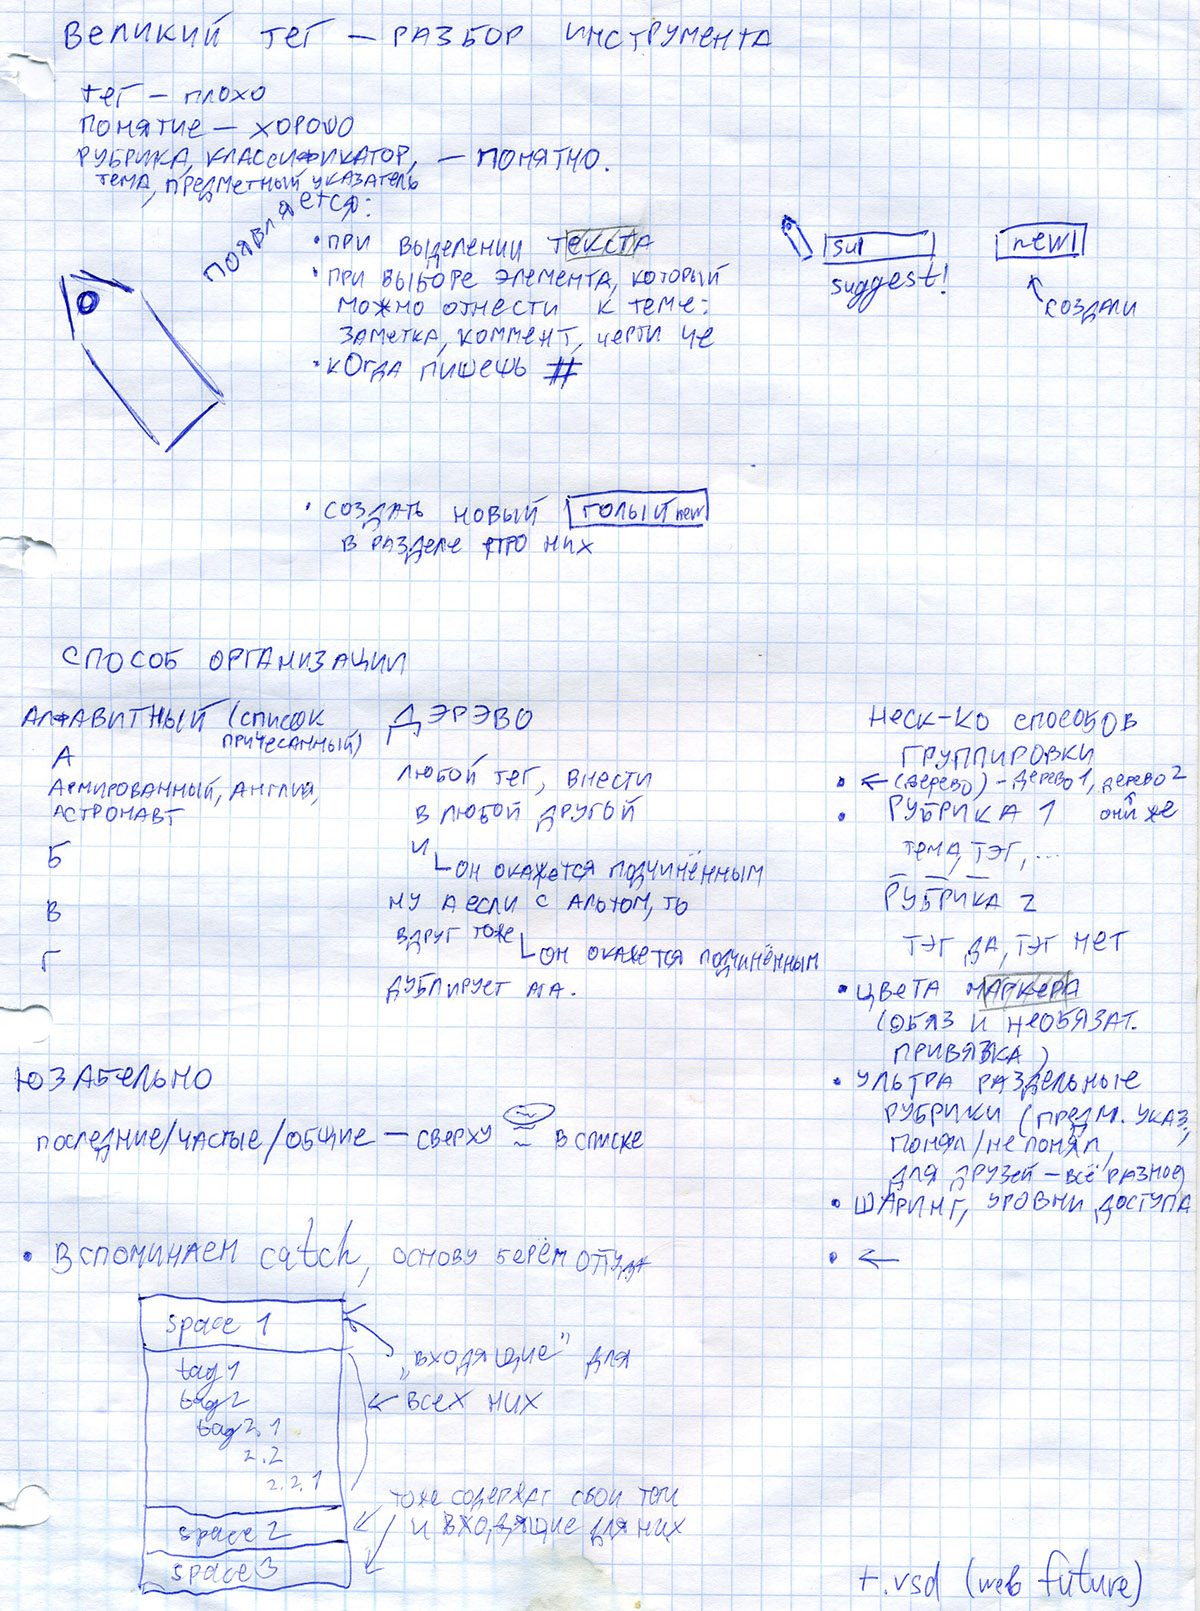 ВЕЛИКИЙ ТЕГ — РАЗБОР ИНСТРУМЕНТА
ТЕГ — ПЛОХО
ПОНЯТИЕ — ХОРОШО
РУБРИКА, КЛАССИФИКАТОР, — ПОНЯТНО.
ТЕМА, ПРЕДМЕТНЫЙ УКАЗАТЕЛЬ
ПОЯВЛЯЕТСЯ:
• ПРИ ВЫДЕЛЕНИИ ТЕКСТА
• ПРИ ВЫБОРЕ ЭЛЕМЕНТА, КОТОРЫЙ
МОЖНО ОТНЕСТИ К ТЕМЕ:
ЗАМЕТКА, КОММЕНТ, ЧЕРТИ ЧЕ
• КОГДА ПИШЕШЬ #
su|
suggest!
new|
СОЗДАЛИ
• СОЗДАТЬ НОВЫЙ ГОЛЫЙ new
В РАЗДЕЛЕ ПРО НИХ
СПОСОБ ОРГАНИЗАЦИИ
АЛФАВИТНЫЙ (СПИСОК
ПРИЧЕСАННЫЙ)
А
АРМИРОВАННЫЙ, АНГЛИЯ,
АСТРОНАВТ
Б
В
Г
ДЭРЭВО
ЛЮБОЙ ТЕГ, ВНЕСТИ
В ЛЮБОЙ ДРУГОЙ
И
ОН ОКАЖЕТСЯ ПОДЧИНЁННЫМ
НУ А ЕСЛИ С АЛЬТОМ, ТО
ВДРУГ ТОЖЕ
ОН ОКАЖЕТСЯ ПОДЧИНЁННЫМ
ДУБЛИРУЕТ
НЕСК-КО СПОСОБОВ
ГРУППИРОВКИ
• ← (ДЕРЕВО) – ДЕРЕВО 1, ДЕРЕВО 2
ОНИ ЖЕ
• РУБРИКА 1
ТЕМА, ТЭГ, ...
РУБРИКА 2
ТЭГ ДА, ТЭГ НЕТ
• ЦВЕТА МАРКЕРА
(ОБЯЗ И НЕОБЯЗАТ.
ПРИВЯЗКА)
• УЛЬТРА РАЗДЕЛЬНЫЕ
РУБРИКИ (ПРЕДМ. УКАЗ,
ПОНЯЛ/НЕ ПОНЯЛ,
ДЛЯ ДРУЗЕЙ – ВСЁ РАЗНОЕ)
• ШАРИНГ, УРОВНИ ДОСТУПА
• ←
ЮЗАБЕЛЬНО
ПОСЛЕДНИЕ/ЧАСТЫЕ/ОБЩИЕ — СВЕРХУ В СПИСКЕ
• ВСПОМИНАЕМ catch, ОСНОВУ БЕРЁМ ОТТУДА
space 1
tag 1
tag 2
tag 2.1
2.2
2.2.1
space 2
space 3
„ВХОДЯЩИЕ" ДЛЯ
ВСЕХ НИХ
ТОЖЕ СОДЕРЖАТ СВОИ ТЕГИ
И ВХОДЯЩИЕ ДЛЯ НИХ
+.vsd (web future)